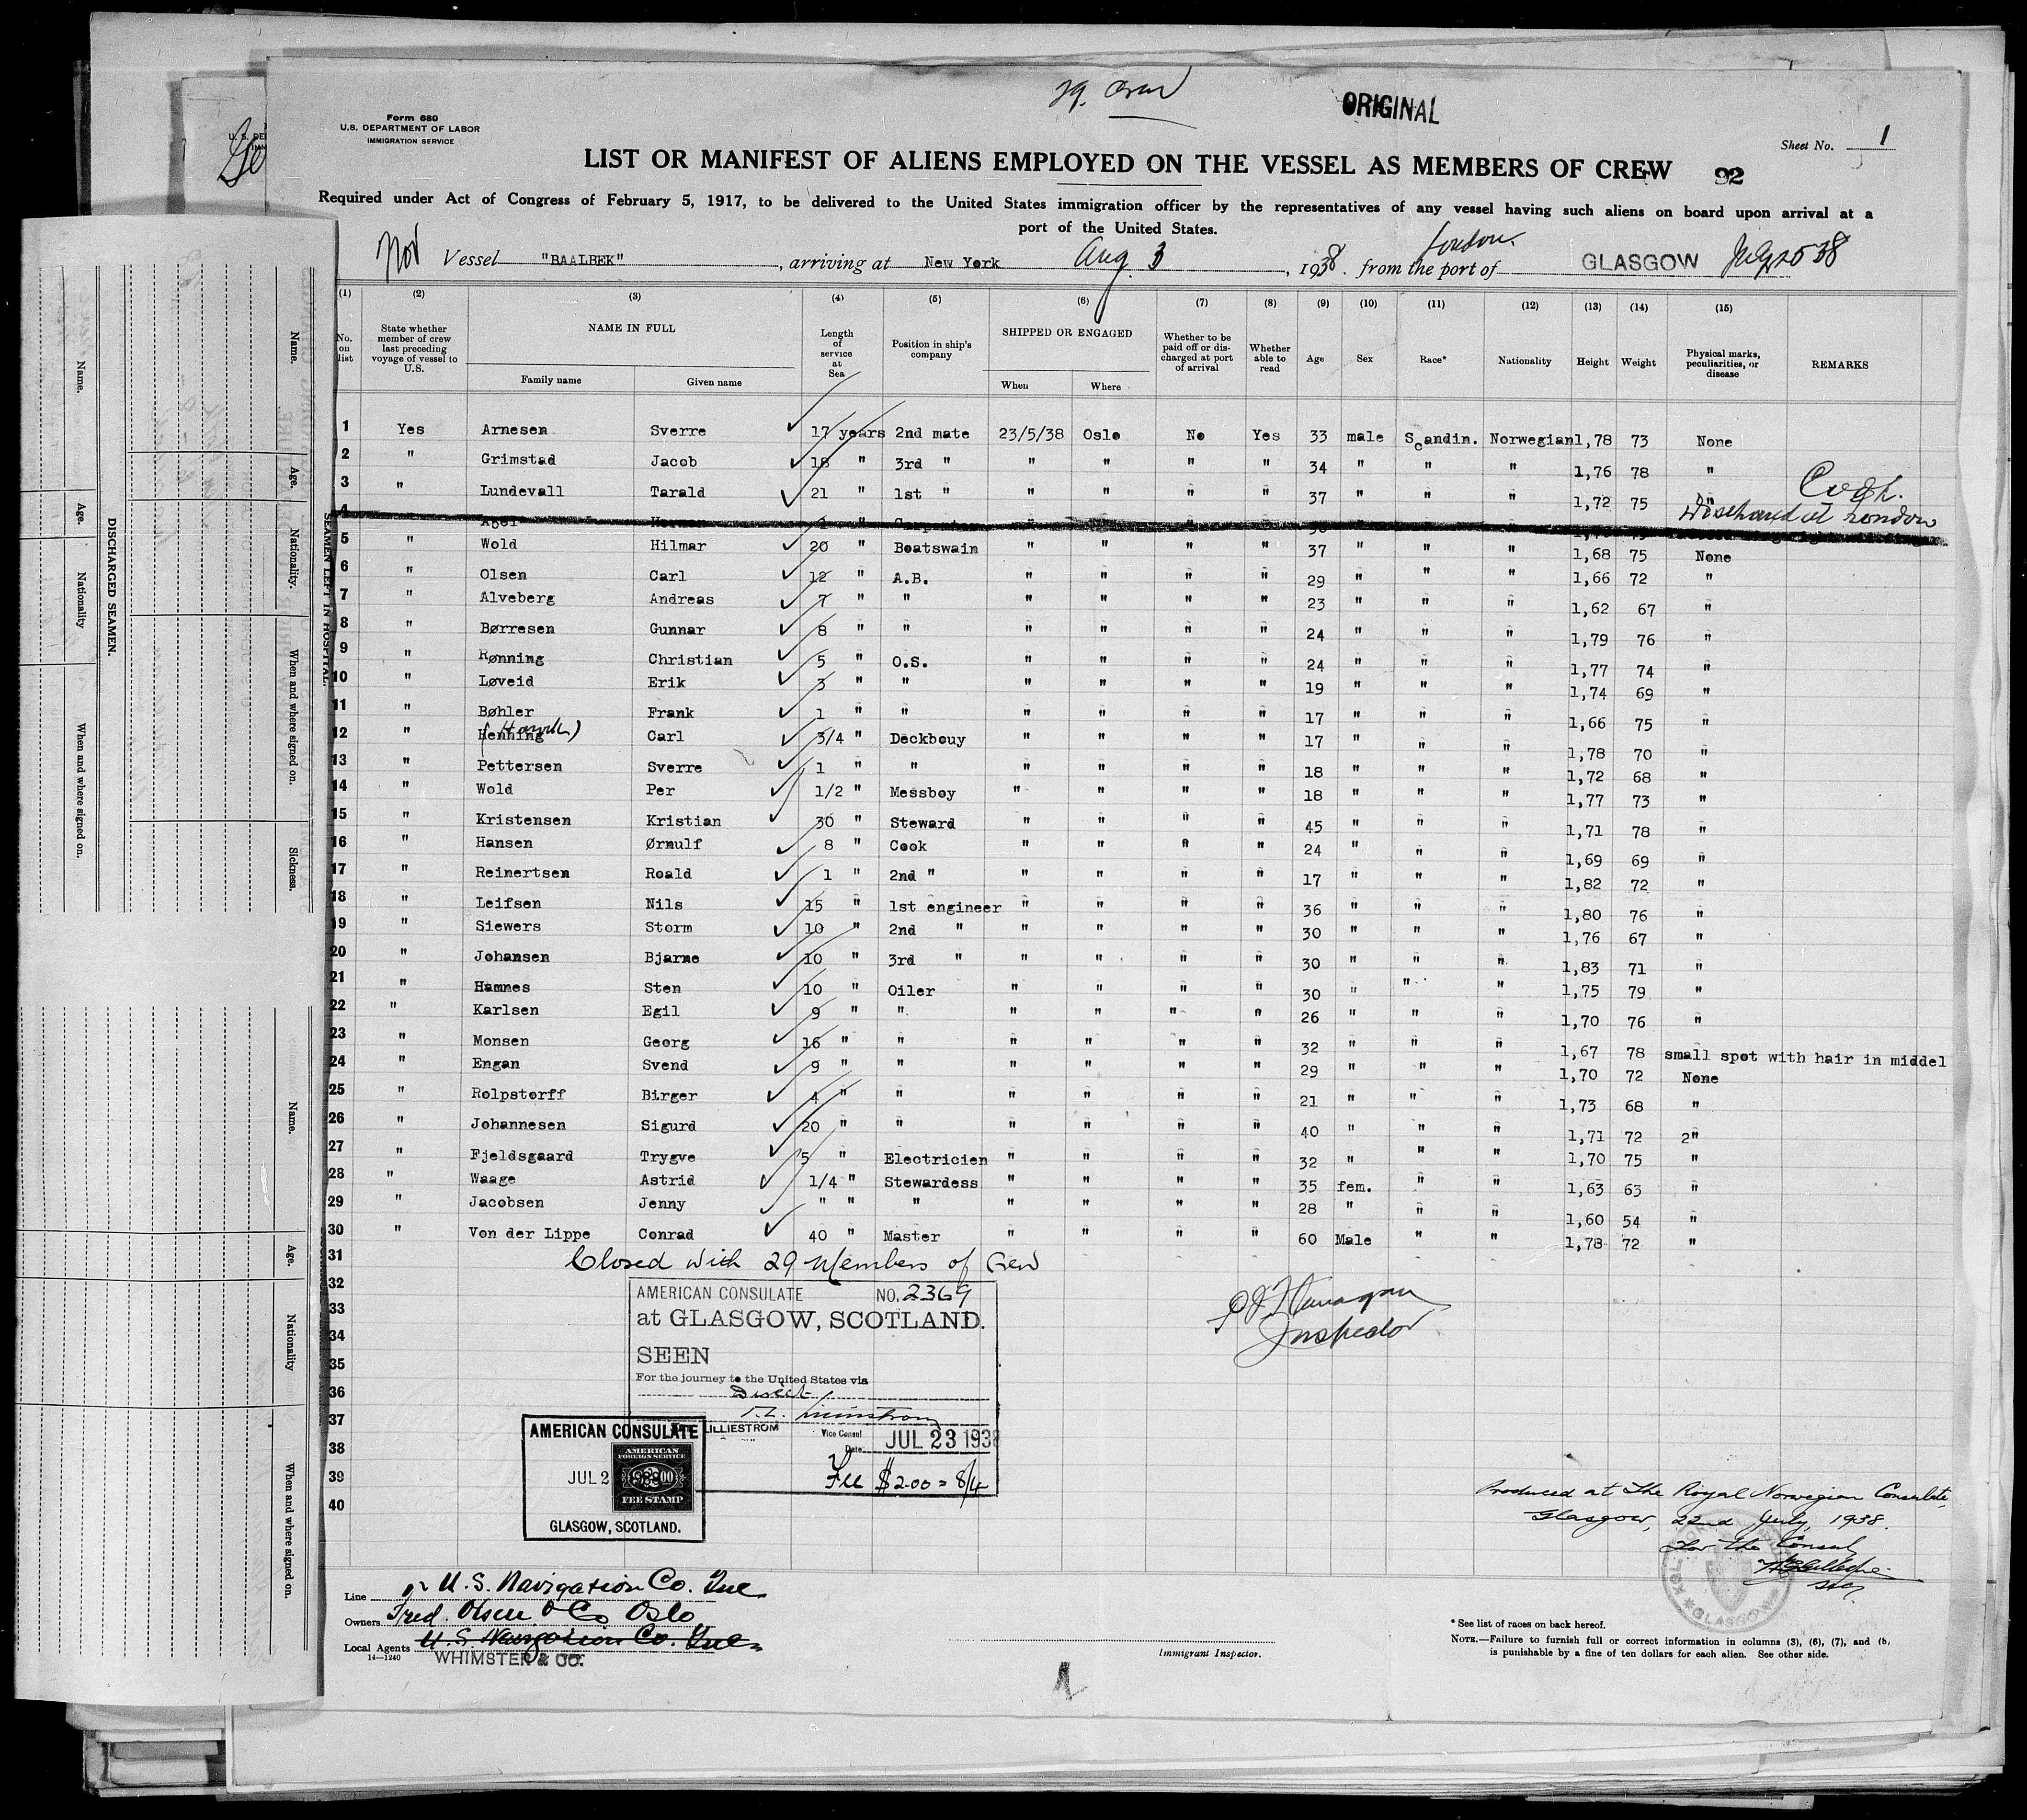 29. Crew
ORIGINAL
Form 680
U.S. DEPARTMENT OF LABOR
IMMIGRATION SERVICE
Sheet No. 1
LIST OR MANIFEST OF ALIENS EMPLOYED ON THE VESSEL AS MEMBERS OF CREW 92
Required under Act of Congress of February 5, 1917, to be delivered to the United States immigration officer by the representatives of any vessel having such aliens on board upon arrival at a
port of the United States.
Nor Vessel "BAALBEK", arriving at New York Aug 3, 1938. from the port of London. GLASGOW July 25 38
(1) (2) (3) (4) (5) (6) (7) (8) (9) (10) (11) (12) (13) (14) (15)
No. on list State whether member of crew last preceding voyage of vessel to U.S. NAME IN FULL Length of service at Sea Position in ship's company SHIPPED OR ENGAGED Whether to be paid off or discharged at port of arrival Whether able to read Age Sex Race* Nationality Height Weight Physical marks, peculiarities, or disease REMARKS
Family name Given name When Where
1 Yes Arnesen Sverre 17 years 2nd mate 23/5/38 Oslo No Yes 33 male Scandin. Norwegian 1,78 73 None
2 " Grimstad Jacob 18 " 3rd " " " " " 34 " " " 1,76 78 "
3 " Lundevall Tarald 21 " 1st " " " " " 37 " " " 1,72 75 "
4 Abel Herman Carpenter Discharged at London
5 " Wold Hilmar 20 " Boatswain " " " " 37 " " " 1,68 75 None
6 " Olsen Carl 12 " A.B. " " " " 29 " " " 1,66 72 "
7 " Alveberg Andreas 7 " " " " " " 23 " " " 1,62 67 "
8 " Børresen Gunnar 8 " " " " " " 24 " " " 1,79 76 "
9 " Rønning Christian 5 " O.S. " " " " 24 " " " 1,77 74 "
10 " Løveid Erik 3 " " " " " " 19 " " " 1,74 69 "
11 " Bøhler Frank 1 " " " " " " 17 " " " 1,66 75 "
12 " Henning Carl 3/4 " Deckbouy " " " " 17 " " " 1,78 70 "
13 " Pettersen Sverre 1 " " " " " " 18 " " " 1,72 68 "
14 " Wold Per 1/2 " Messboy " " " " 18 " " " 1,77 73 "
15 " Kristensen Kristian 30 " Steward " " " " 45 " " " 1,71 78 "
16 " Hansen Ørnulf 8 " Cook " " " " 24 " " " 1,69 69 "
17 " Reinertsen Roald 1 " 2nd " " " " " 17 " " " 1,82 72 "
18 " Leifsen Nils 15 " 1st engineer " " " " 36 " " " 1,80 76 "
19 " Siewers Storm 10 " 2nd " " " " " 30 " " " 1,76 67 "
20 " Johansen Bjarne 10 " 3rd " " " " " 30 " " " 1,83 71 "
21 " Hamnes Sten 10 " Oiler " " " " 30 " " " 1,75 79 "
22 " Karlsen Egil 9 " " " " " " 26 " " " 1,70 76 "
23 " Monsen Georg 16 " " " " " " 32 " " " 1,67 78 small spot with hair in middel
24 " Engan Svend 9 " " " " " " 29 " " " 1,70 72 None
25 " Rolpstorff Birger 4 " " " " " " 21 " " " 1,73 68 "
26 " Johannesen Sigurd 20 " " " " " " 40 " " " 1,71 72 2"
27 " Fjeldsgaard Trygve 5 " Electricien " " " " 32 " " " 1,70 75 "
28 " Waage Astrid 1/4 " Stewardess " " " " 35 fem. " " 1,63 63 "
29 " Jacobsen Jenny " " " " " " " 28 " " " 1,60 54 "
30 " Von der Lippe Conrad 40 " Master " " " " 60 Male " " 1,78 72 "
31 Closed with 29 Members of Crew
32
33
34
35
36
37
38
39
40
AMERICAN CONSULATE NO. 2369
at GLASGOW, SCOTLAND.
SEEN
For the journey to the United States via
Direct
LILLIESTROM
Vice Consul
Date: JUL 23 1938
Fee $2.00 = 8/4
Inspector
AMERICAN CONSULATE
JUL 2
AMERICAN
FOREIGN SERVICE
FEE STAMP
GLASGOW, SCOTLAND.
Produced at The Royal Norwegian Consulate,
Glasgow, 22nd July, 1938.
For the Consul
GLASGOW
Line U.S. Navigation Co. Inc
Owners Fred. Olsen & Co Oslo
Local Agents U.S. Navigation Co. Inc.
14—1240 WHIMSTER & CO.
Immigrant Inspector.
* See list of races on back hereof.
NOTE.—Failure to furnish full or correct information in columns (3), (6), (7), and
is punishable by a fine of ten dollars for each alien. See other side.
DISCHARGED SEAMEN.
Name.
Age.
Nationality
When and where signed on.
SEAMEN LEFT IN HOSPITAL.
Name.
Age.
Nationality.
When and where signed on.
Sickness.
Name.
Age.
Nationality
When and where signed on.